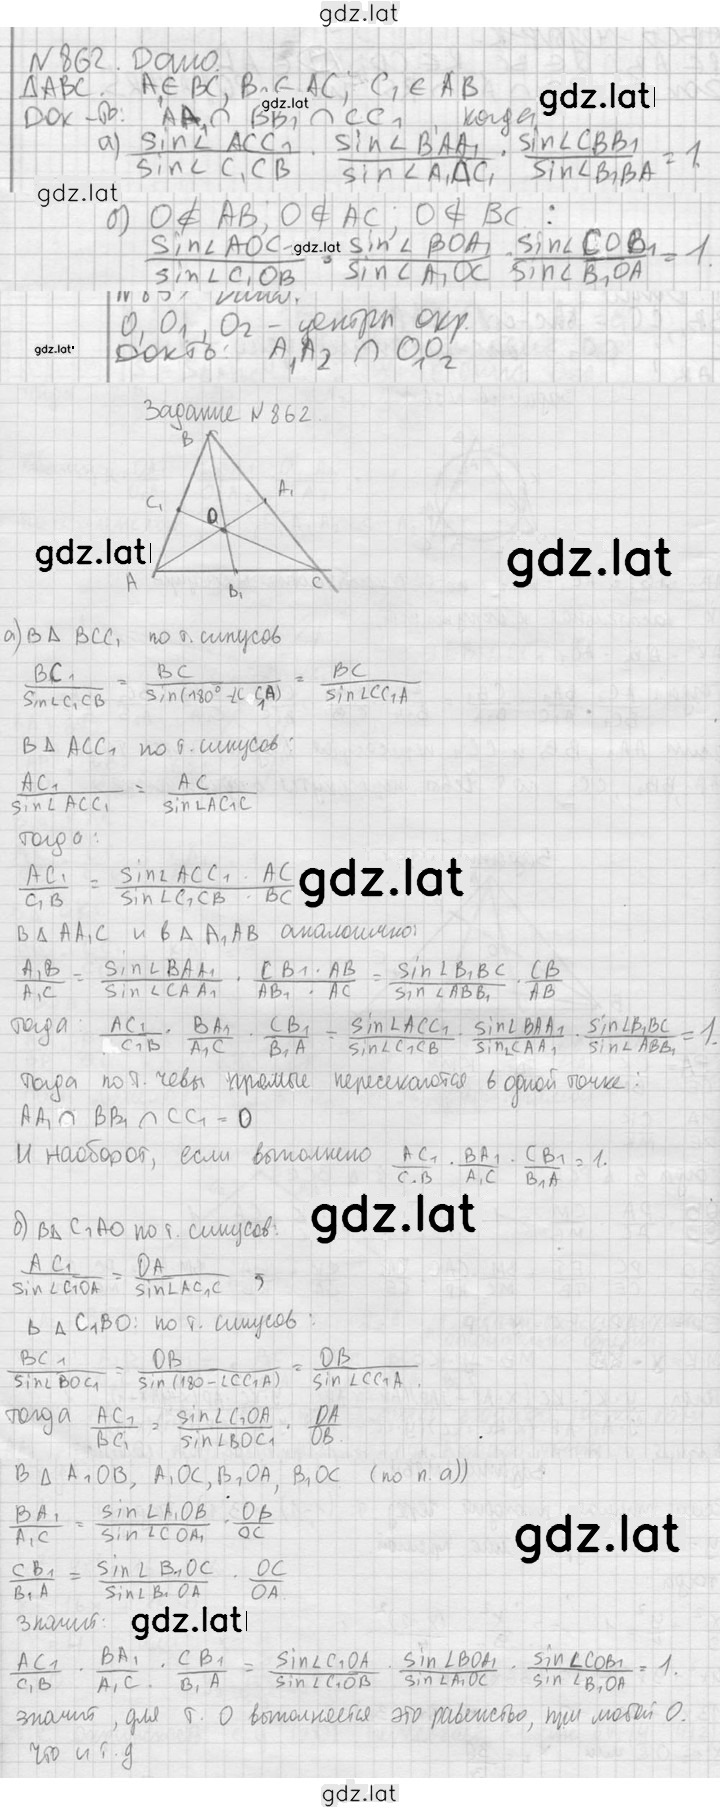 gdz.lat
N862. Дано.
ΔABC. A₁∈BC, B₁∈AC, C₁∈AB
gdz.lat
Док-ть: AA₁ ∩ BB₁ ∩ CC₁, когда
gdz.lat
а) sin∠ACC₁/sin∠C₁CB · sin∠BAA₁/sin∠A₁AC₁ · sin∠CBB₁/sin∠B₁BA = 1.
gdz.lat
б) O∉AB; O∉AC; O∉BC :
sin∠AOC/sin∠C₁OB · sin∠BOA₁/sin∠A₁OC · sin∠COB₁/sin∠B₁OA = 1.
gdz.lat
O, O₁, O₂ - центры окр.
gdz.lat
Док-ть: A₁A₂ ∩ O₁O₂
Задание N862
B
C₁ O A₁
A B₁ C
gdz.lat gdz.lat
а) В Δ BCC₁ по т. синусов
BC₁/sin∠C₁CB = BC/sin(180°-∠CC₁A) = BC/sin∠CC₁A
В Δ ACC₁ по т. синусов:
AC₁/sin∠ACC₁ = AC/sin∠AC₁C
тогда:
AC₁/C₁B = sin∠ACC₁ · AC/sin∠C₁CB · BC
gdz.lat
В Δ AA₁C и в Δ A₁AB аналогично:
A₁B/A₁C = sin∠BAA₁/sin∠CAA₁ · CB₁ · AB/AB₁ · AC = sin∠B₁BC/sin∠ABB₁ · CB/AB
тогда: AC₁/C₁B · BA₁/A₁C · CB₁/B₁A = sin∠ACC₁/sin∠C₁CB · sin∠BAA₁/sin∠CAA₁ · sin∠B₁BC/sin∠ABB₁ = 1.
тогда по т. Чевы прямые пересекаются в одной точке:
AA₁ ∩ BB₁ ∩ CC₁ = O
И наоборот, если выполнено AC₁/C₁B · BA₁/A₁C · CB₁/B₁A = 1.
gdz.lat
б) В Δ C₁AO по т. синусов:
AC₁/sin∠C₁OA = OA/sin∠AC₁C ,
В Δ C₁BO: по т. синусов:
BC₁/sin∠BOC₁ = OB/sin(180-∠CC₁A) = OB/sin∠CC₁A.
тогда AC₁/BC₁ = sin∠C₁OA/sin∠BOC₁ · OA/OB.
В Δ A₁OB, A₁OC, B₁OA, B₁OC (по п. а))
BA₁/A₁C = sin∠A₁OB/sin∠COA₁ · OB/OC
gdz.lat
CB₁/B₁A = sin∠B₁OC/sin∠B₁OA · OC/OA.
значит:
gdz.lat
AC₁/C₁B · BA₁/A₁C · CB₁/B₁A = sin∠C₁OA/sin∠C₁OB · sin∠BOA₁/sin∠A₁OC · sin∠COB₁/sin∠B₁OA = 1.
значит, для т. O выполняется это равенство, при любой O.
что и т.д
gdz.lat